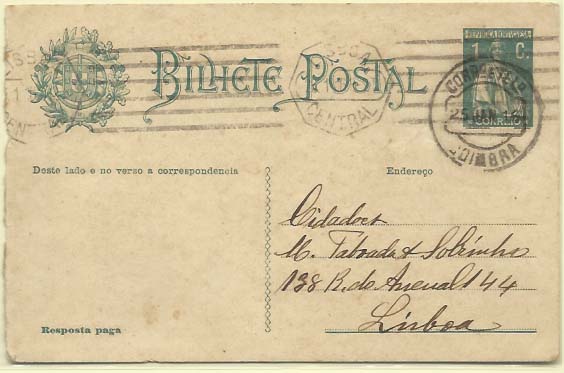 REPUBLICA PORTUGUESA
1 C.
BILHETE POSTAL
CENTRAL
CORREIO
COIMBRA
Deste lado e no verso a correspondencia
Endereço
Cidadãos
M. Taboada & Sobrinho
138 R. do Arsenal 144
Lisboa
Resposta paga